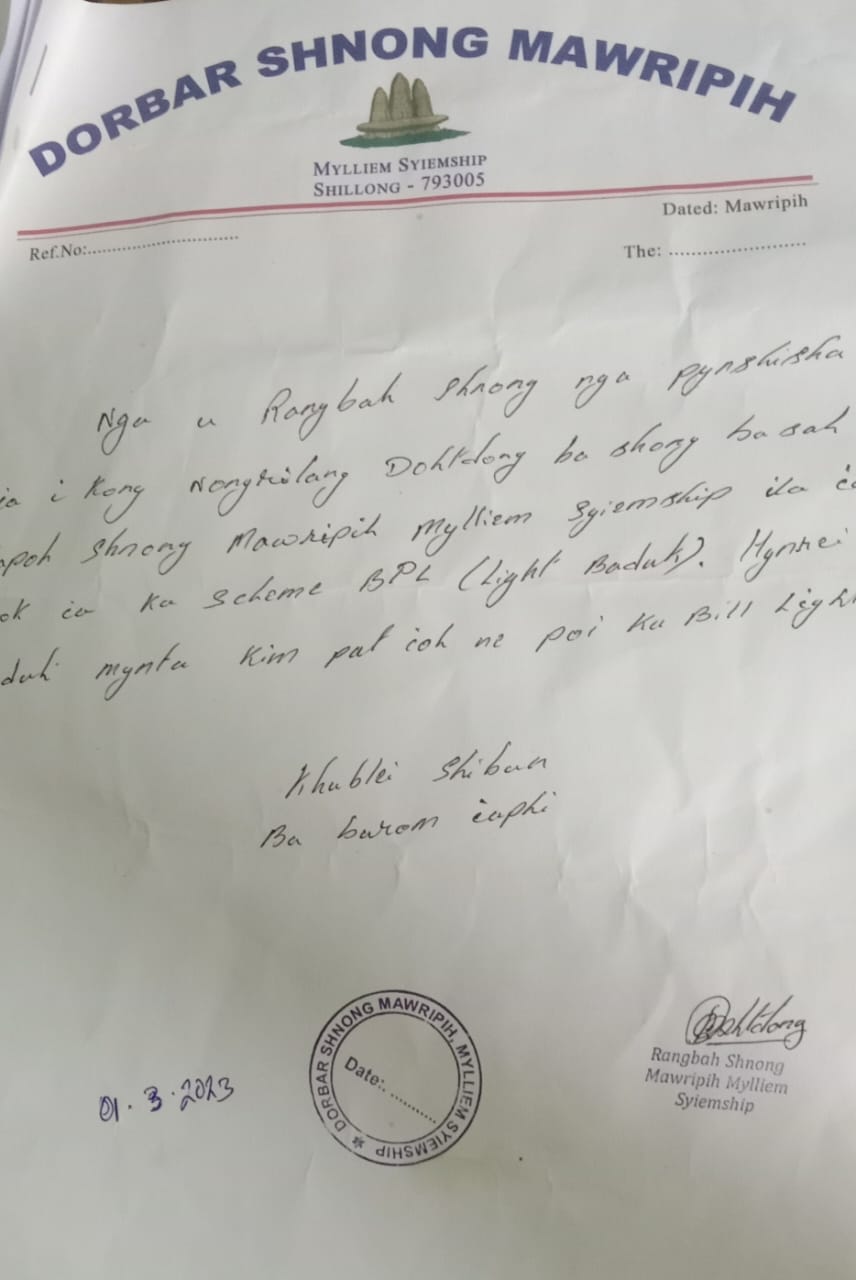 DORBAR SHNONG MAWRIPIH
MYLLIEM SYIEMSHIP
SHILLONG - 793005
Dated: Mawripih
Ref.No:..............................
The: ........................
Nga u Rangbah Shnong nga pynshisha
ia i Kong Dohtdong ba shong ba sah
apoh Shnong Mawripih Mylliem Syiemship ila
ok ia ka scheme BPL (Light Baduk). Hynrei
duh mynta kim pat ioh ne poi ka Bill Light
Khublei Shibun
Ba burom iaphi
01.3.2023
DORBAR SHNONG MAWRIPIH, MYLLIEM SYIEMSHIP *
Date:...........
Dohtdong
Rangbah Shnong
Mawripih Mylliem
Syiemship